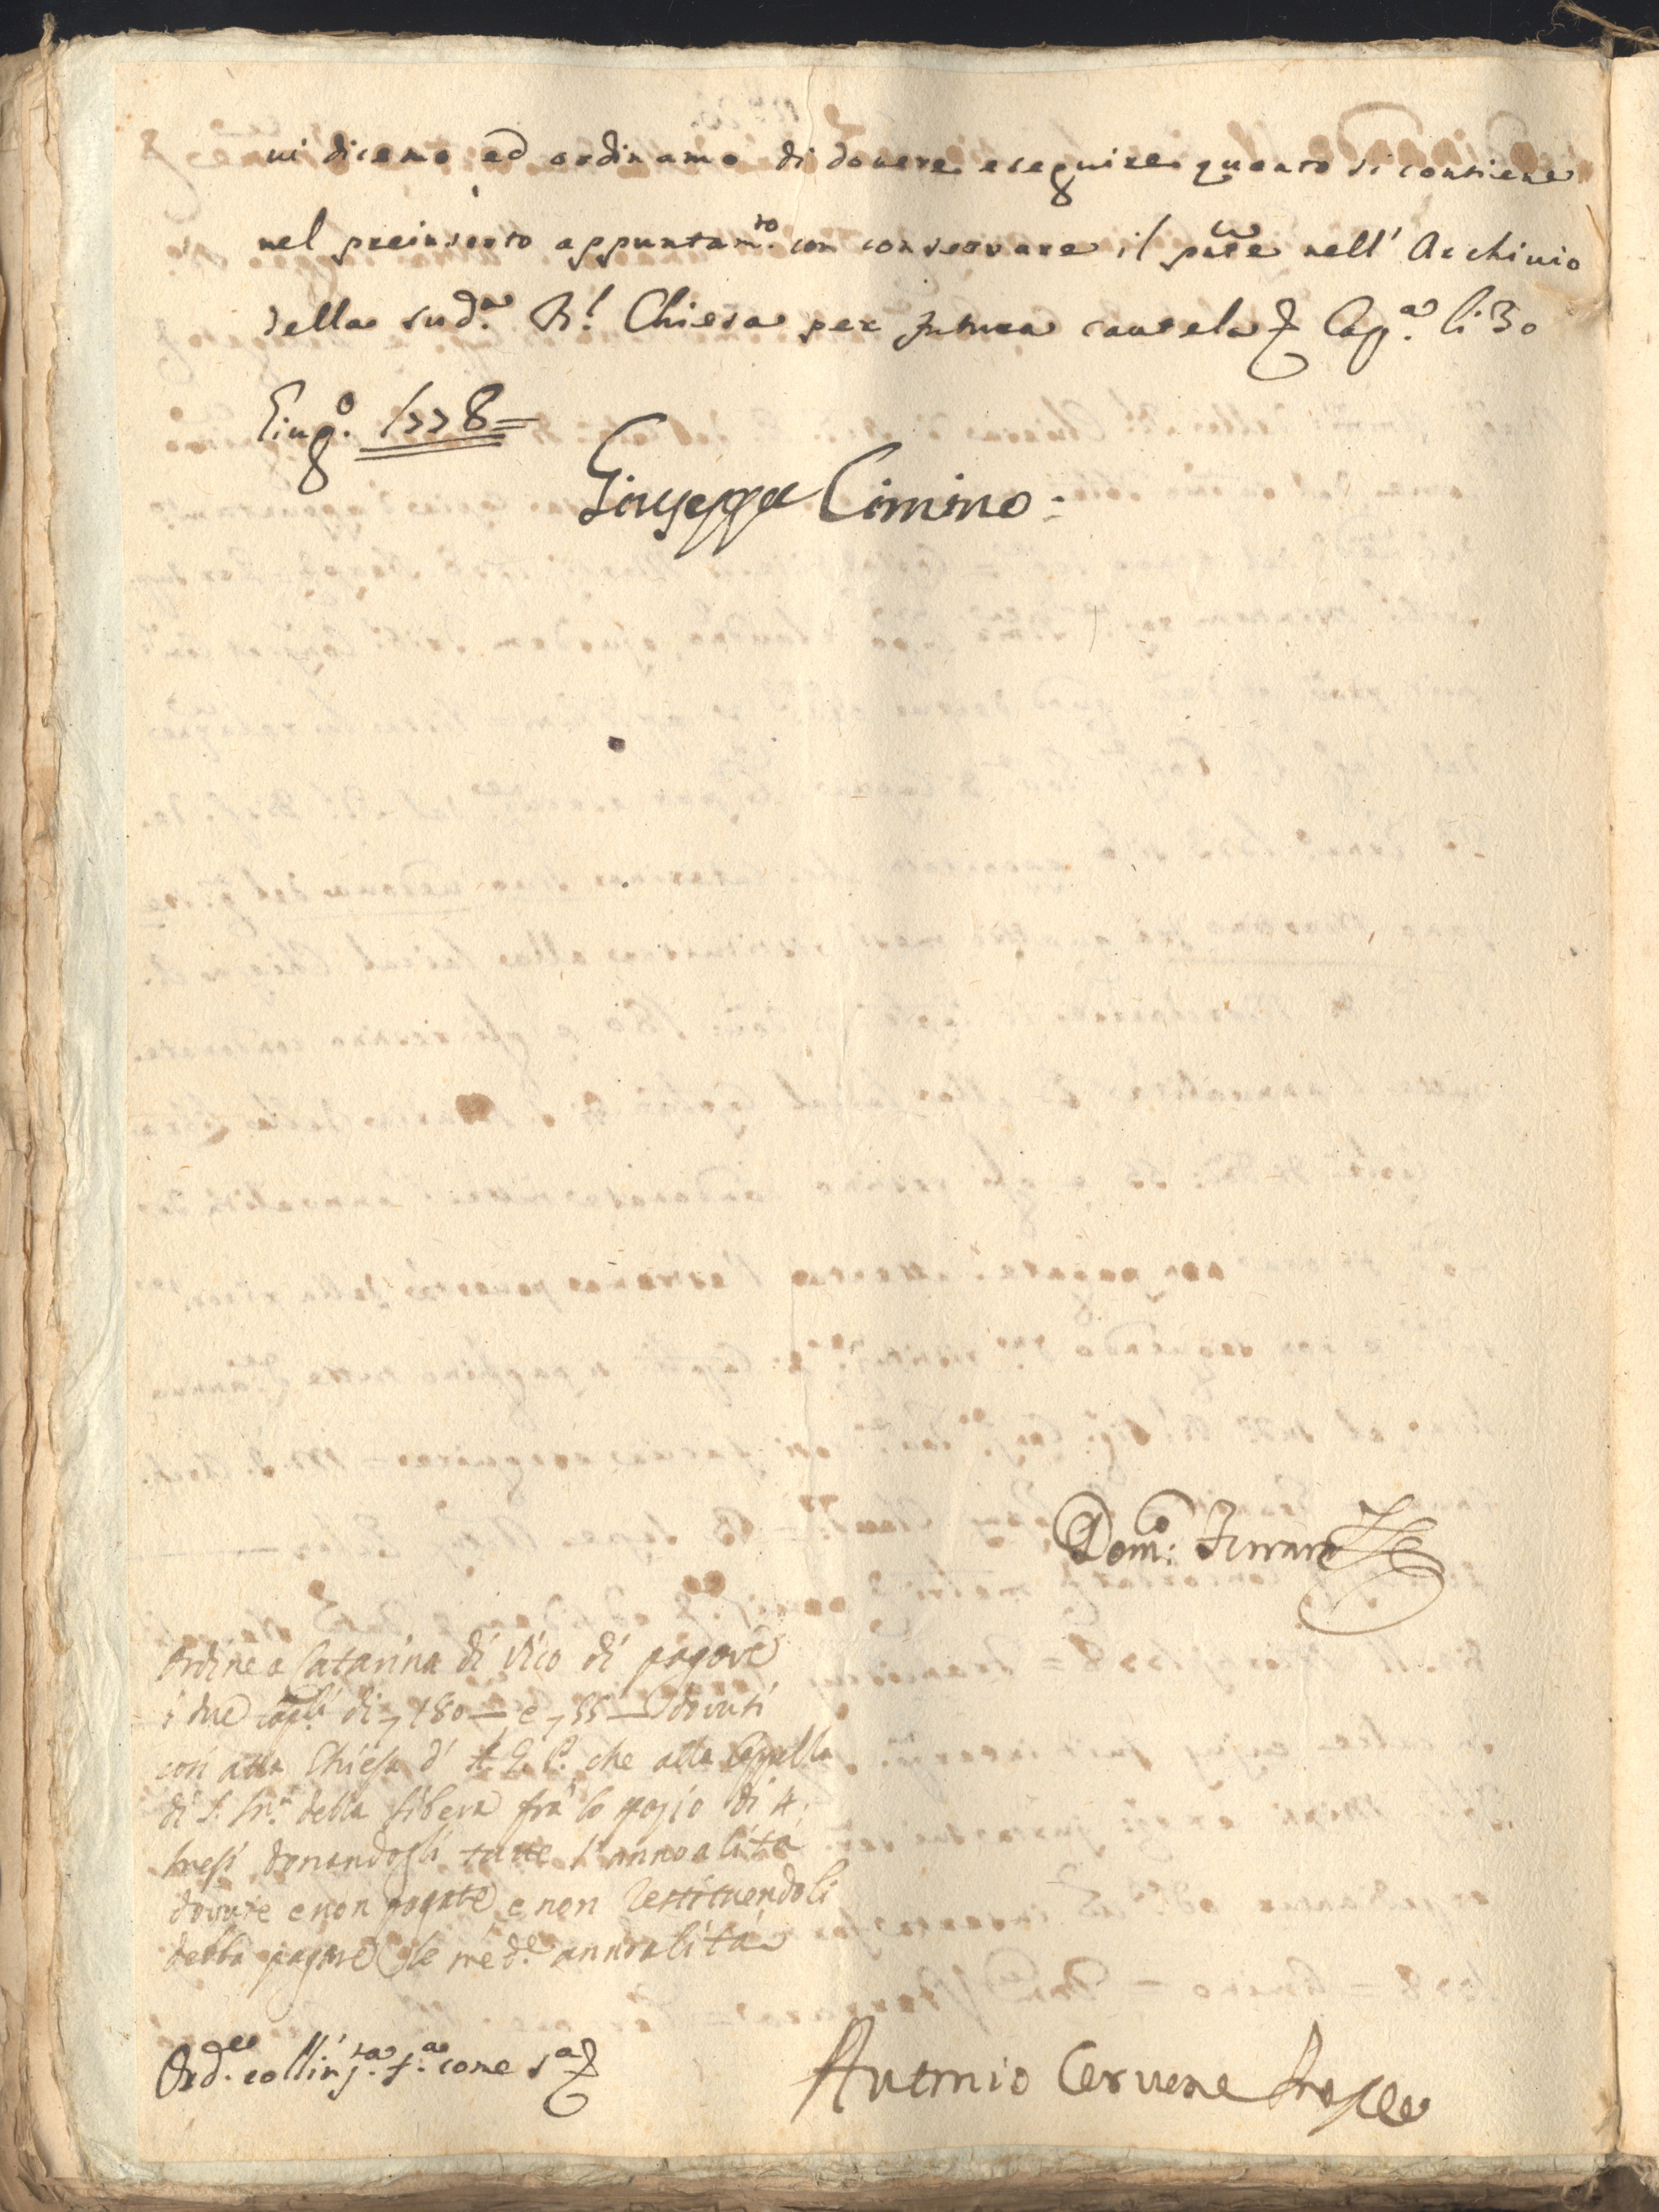 vi dicemo ed ordinamo di dovere eseguire quanto si contiene
nel preinserto appuntam.to con conservare il pnte nell' Archivio
della sud.a R.l Chiesa per futura cautela Cap.a li 30
Giug.o 1778=
Giuseppe Cimino:
Dom.co Ferrara
Ordine a Catarina di Vico di pagare
i due cap.li di 180 — e 55 — dovuti
così alla Chiesa di A. G. P. che alla Cappella
di S. M.a della Libera fra lo spazio di 4.
mesi donandogli tutte l'annualità
dovute e non pagate e non restituendoli
debba pagare le med.e annualità
Ord.e coll' in.ta f.a come s.a
Antonio Cervone